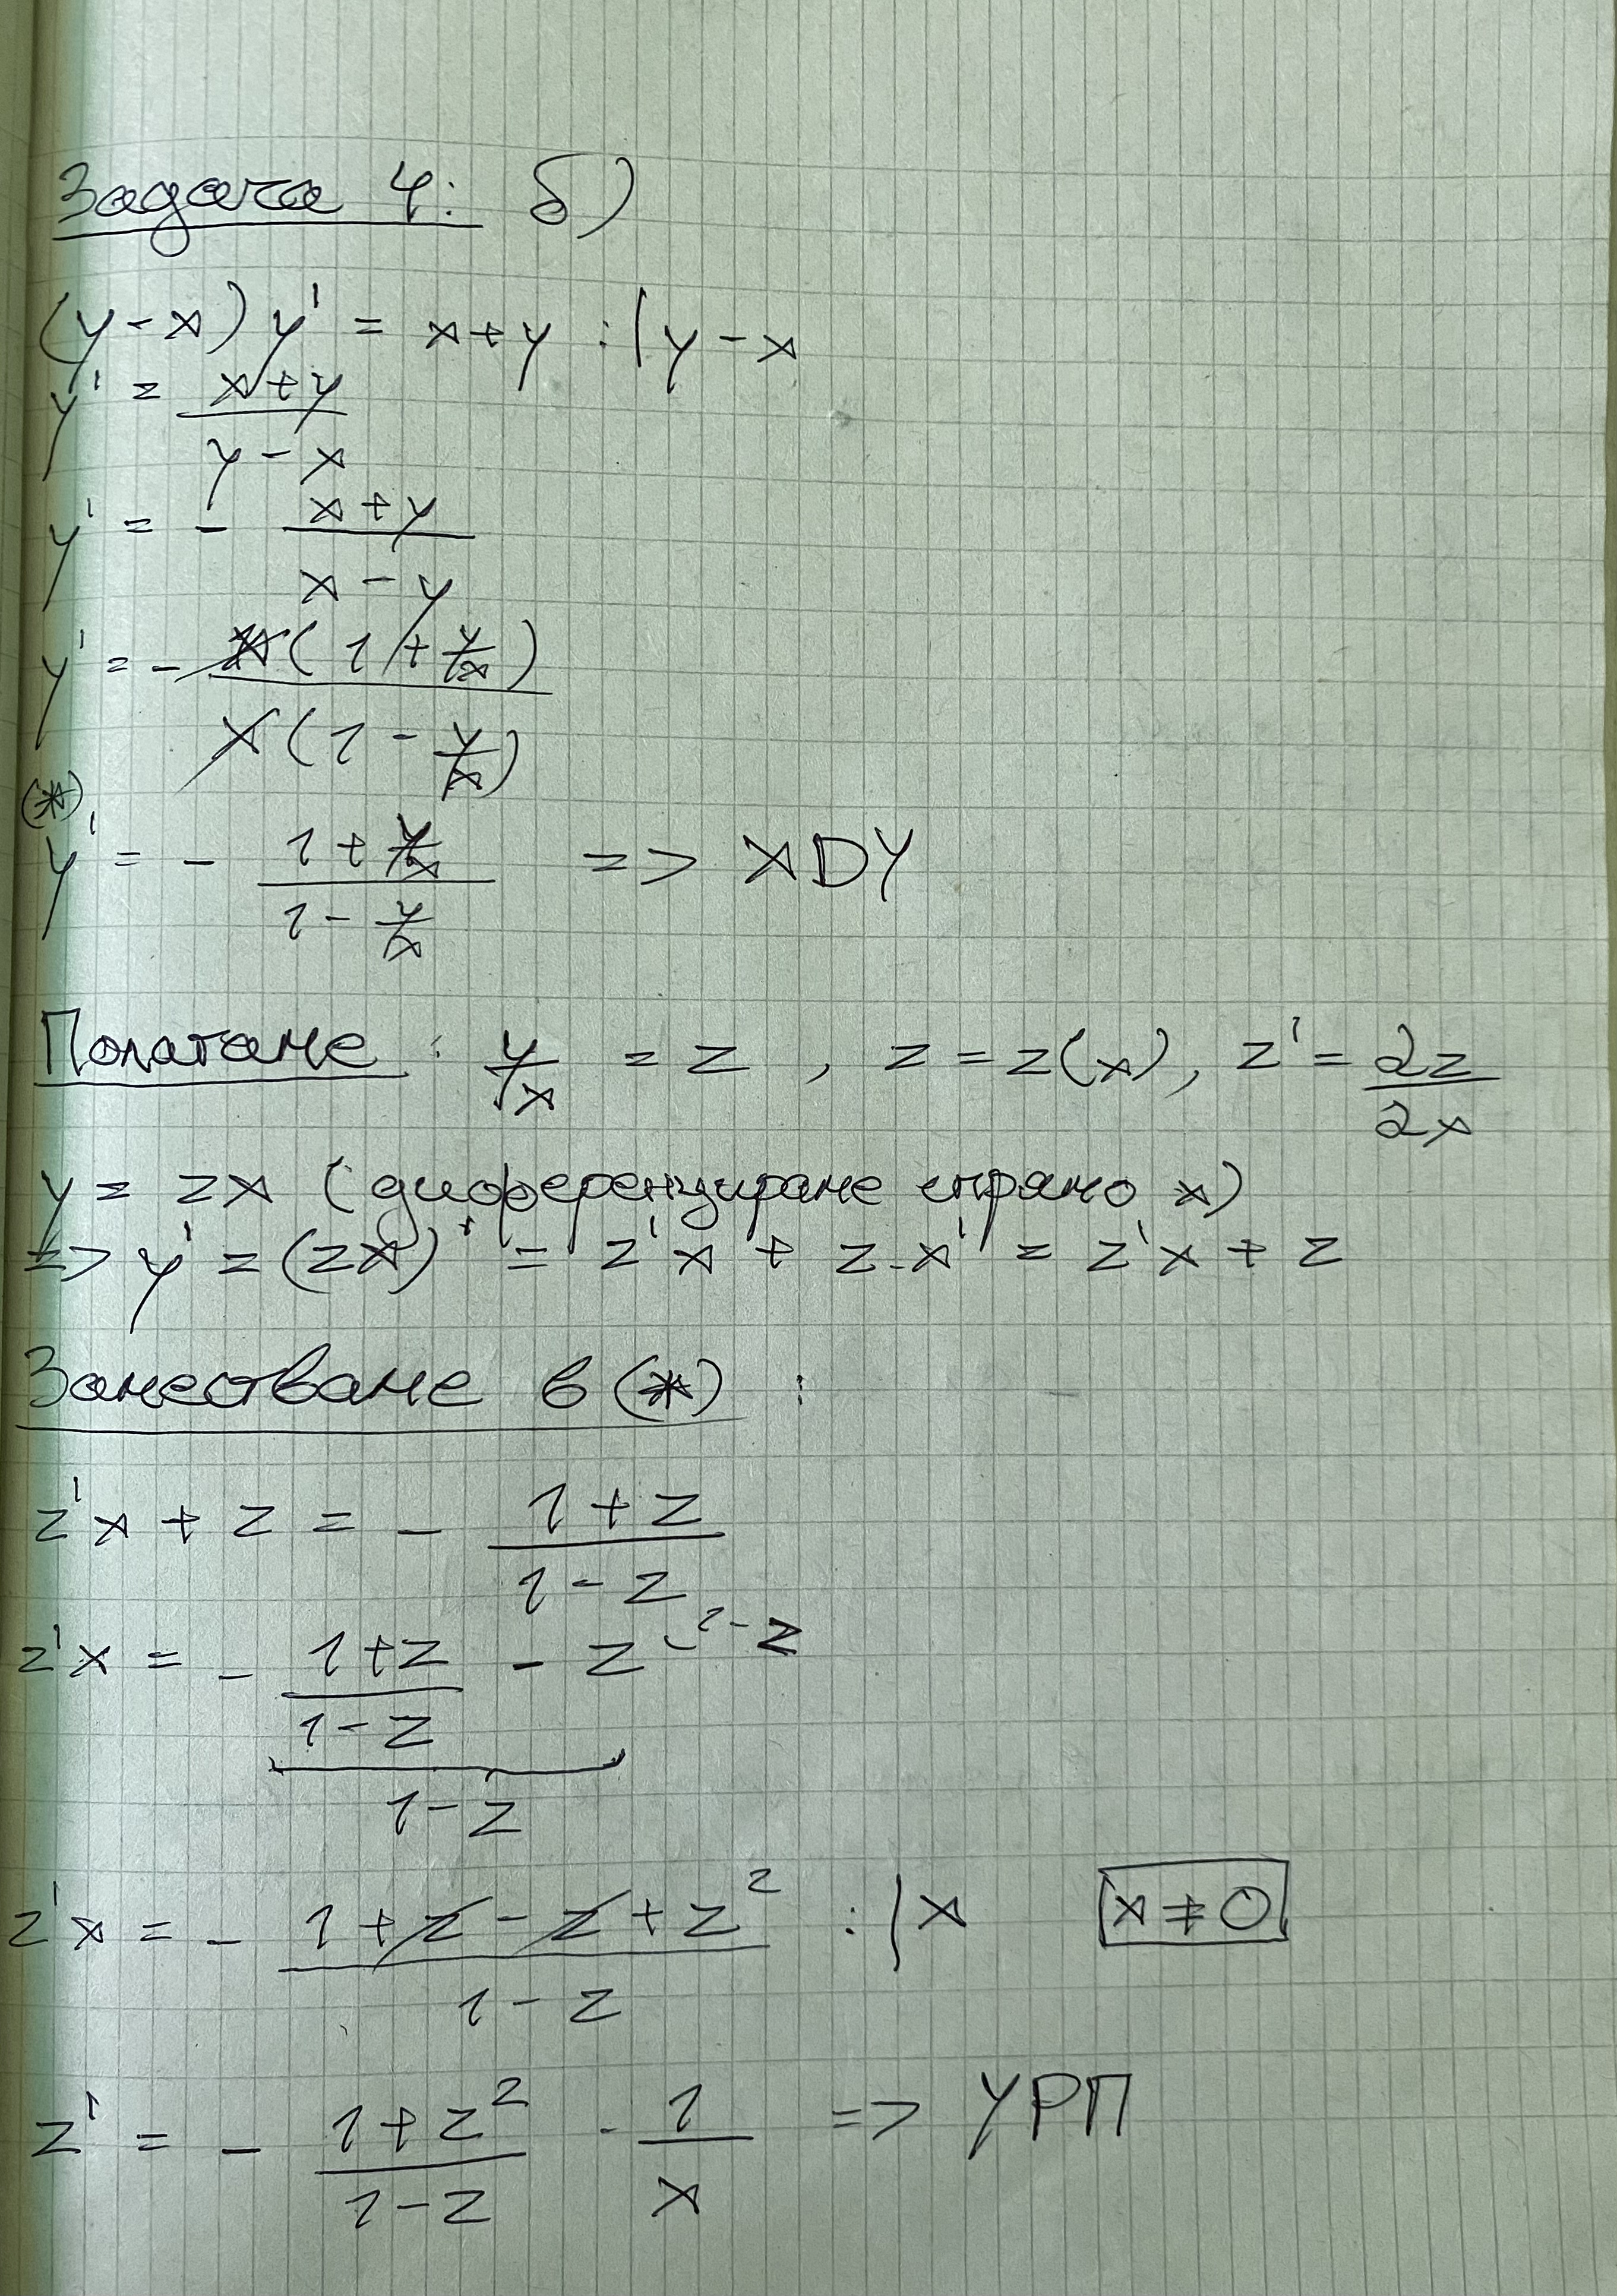 Задача 4: б)
(y-x) y' = x+y :|y-x
y' = x+y
y-x
y' = - x+y
x-y
y' = - x(1+y/x)
x(1-y/x)
(*)
y' = - 1+y/x => ХДУ
1-y/x
Полагаме : y/x = z , z = z(x), z' = ∂z
∂x
y = zx (диференциране спрямо x)
=> y' = (zx)' = z'x + z.x' = z'x + z
Заместваме в (*) :
z'x + z = - 1+z
1-z
z'x = - 1+z - z 1-z
1-z
1-z
z'x = - 1+z-z+z² :|x x≠0
1-z
z' = - 1+z² . 1 => УРП
1-z x